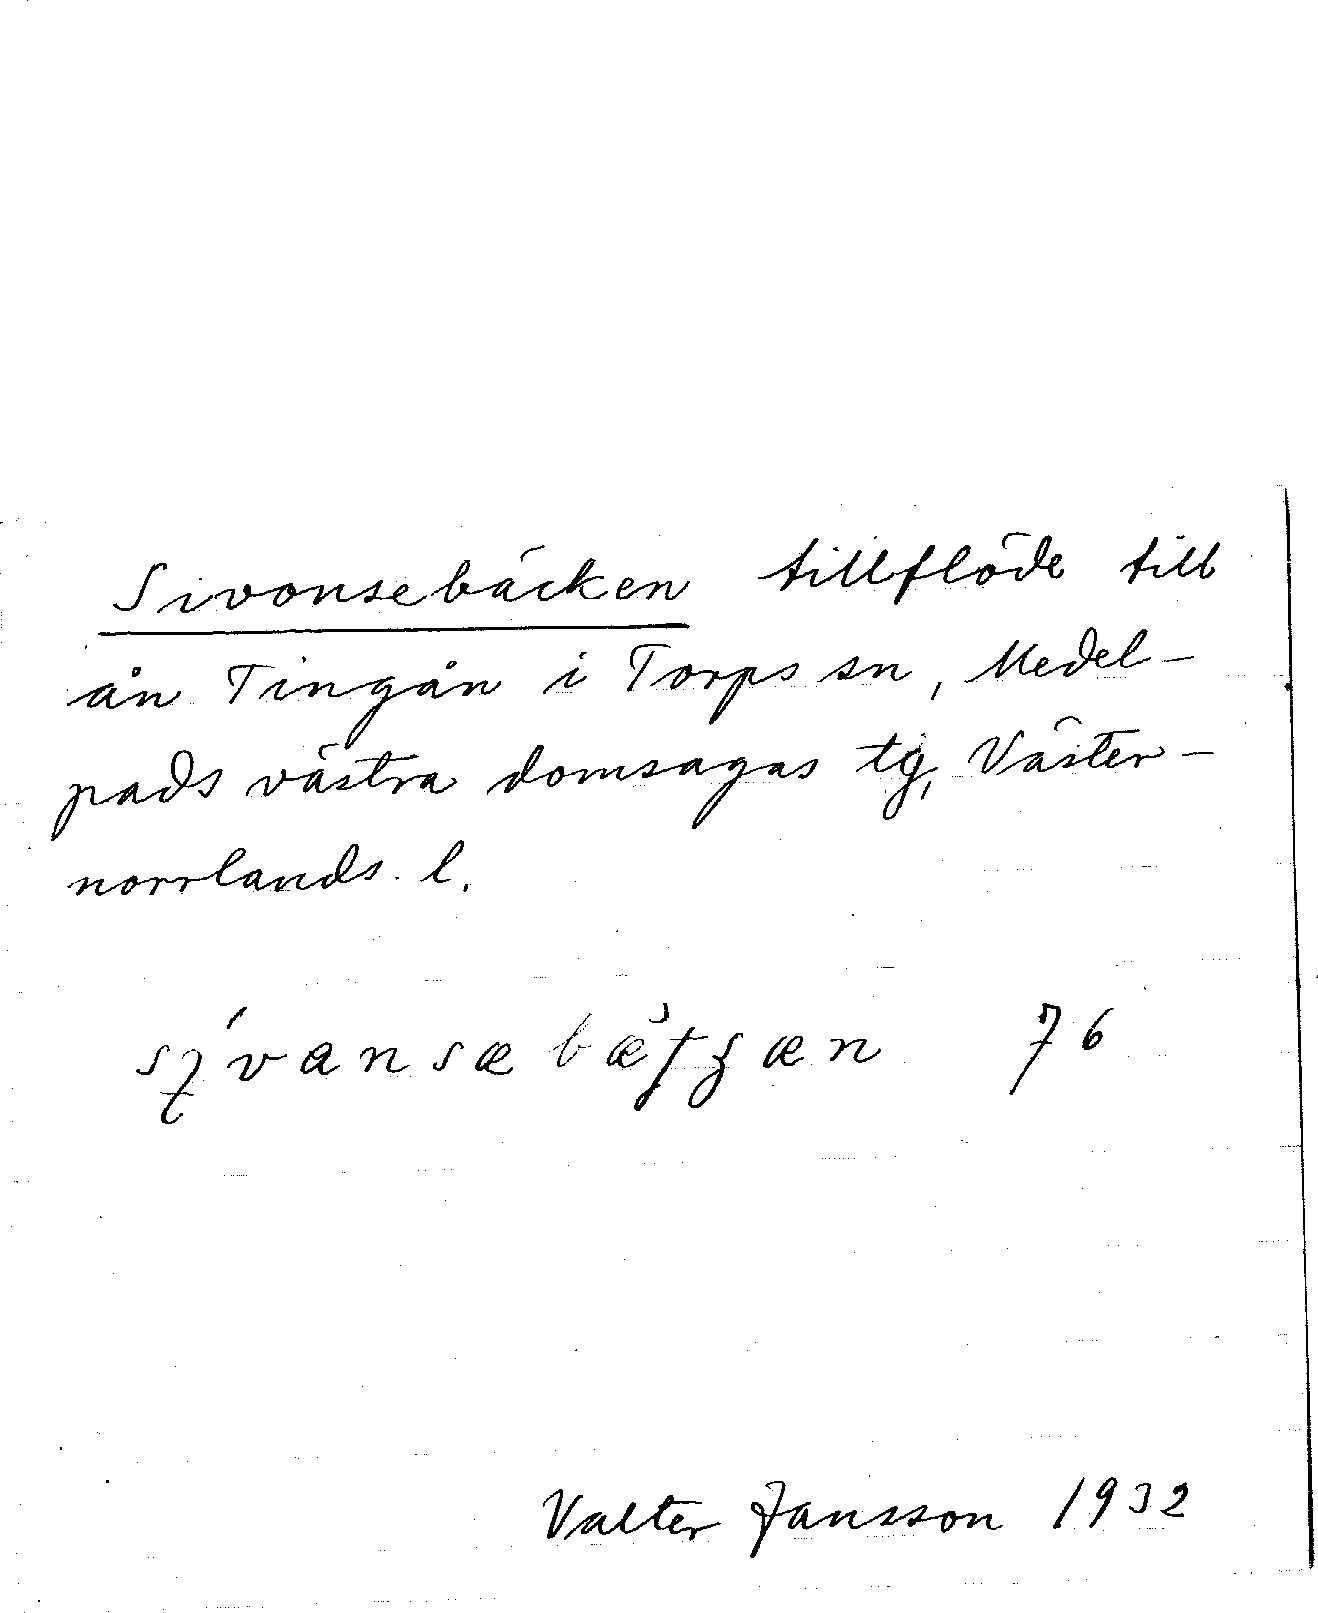 Sivonsebäcken tillflöde till
ån Tingån i Torps sn, Medel-
pads västra domsagas tg, Väster-
norrlands l.
76
Valter Jansson 1932